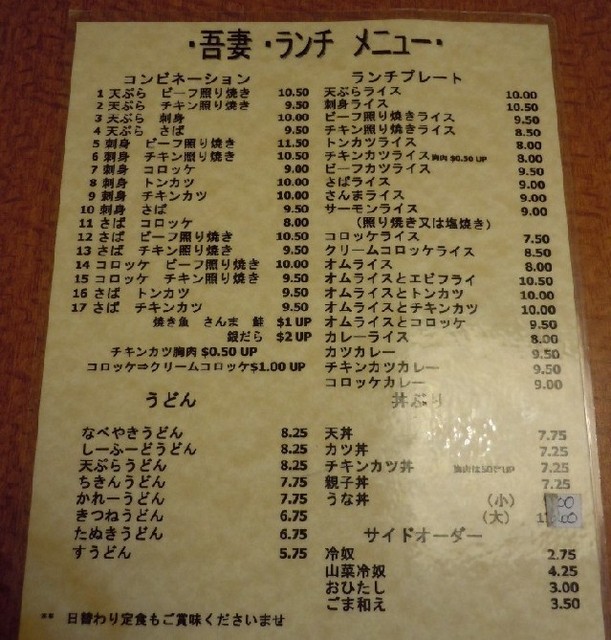 ・吾妻・ランチ メニュー・
コンビネーション
1 天ぷら ビーフ照り焼き 10.50
2 天ぷら チキン照り焼き 9.50
3 天ぷら 刺身 10.00
4 天ぷら さば 9.50
5 刺身 ビーフ照り焼き 11.50
6 刺身 チキン照り焼き 10.50
7 刺身 コロッケ 9.00
8 刺身 トンカツ 10.00
9 刺身 チキンカツ 10.00
10 刺身 さば 9.50
11 さば コロッケ 8.00
12 さば ビーフ照り焼き 10.50
13 さば チキン照り焼き 9.50
14 コロッケ ビーフ照り焼き 10.00
15 コロッケ チキン照り焼き 9.50
16 さば トンカツ 9.50
17 さば チキンカツ 9.50
焼き魚 さんま 鮭 $1 UP
銀だら $2 UP
チキンカツ胸肉 $0.50 UP
コロッケ⇒クリームコロッケ$1.00 UP
うどん
なべやきうどん 8.25
しーふーどうどん 8.25
天ぷらうどん 8.25
ちきんうどん 7.75
かれーうどん 7.75
きつねうどん 6.75
たぬきうどん 6.75
すうどん 5.75
ランチプレート
天ぷらライス 10.00
刺身ライス 10.50
ビーフ照り焼きライス 9.50
チキン照り焼きライス 8.50
トンカツライス 8.00
チキンカツライス 胸肉 $0.50 UP 8.00
ビーフカツライス 9.50
さばライス 9.00
さんまライス 9.00
サーモンライス 9.00
(照り焼き又は塩焼き)
コロッケライス 7.50
クリームコロッケライス 8.50
オムライス 8.00
オムライスとエビフライ 10.50
オムライスとトンカツ 10.00
オムライスとチキンカツ 10.00
オムライスとコロッケ 9.50
カレーライス 8.00
カツカレー 9.50
チキンカツカレー 9.50
コロッケカレー 9.00
丼ぶり
天丼 7.75
カツ丼 7.25
チキンカツ丼 胸肉は50¢UP 7.25
親子丼 7.25
うな丼 (小)
(大)
サイドオーダー
冷奴 2.75
山菜冷奴 4.25
おひたし 3.00
ごま和え 3.50
日替わり定食もご賞味くださいませ